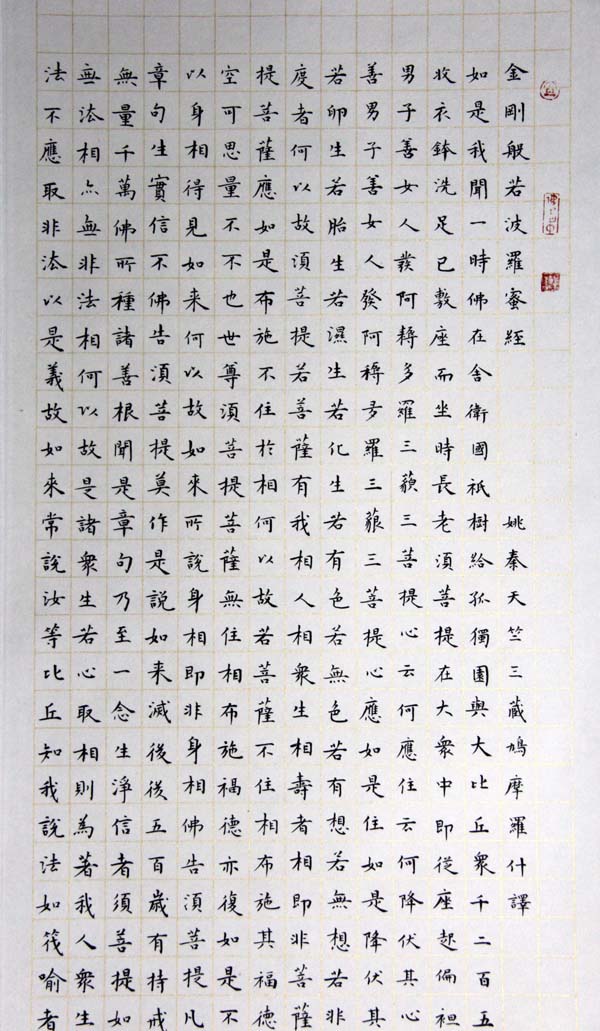 金剛般若波羅蜜經 姚秦天竺三藏鳩摩羅什譯
如是我聞一時佛在舍衛國祇樹給孤獨園與大比丘衆千二百五
收衣鉢洗足已敷座而坐時長老須菩提在大衆中即從座起偏袒
男子善女人發阿耨多羅三藐三菩提心云何應住云何降伏其心
善男子善女人發阿耨多羅三藐三菩提心應如是住如是降伏其
若卵生若胎生若濕生若化生若有色若無色若有想若無想若非
度者何以故須菩提若菩薩有我相人相衆生相壽者相即非菩薩
提菩薩應如是布施不住於相何以故若菩薩不住相布施其福德
空可思量不不也世尊須菩提菩薩無住相布施福德亦復如是不
以身相得見如来何以故如來所說身相即非身相佛告須菩提凡
章句生實信不佛告須菩提莫作是説如来滅後後五百歲有持戒
無量千萬佛所種諸善根聞是章句乃至一念生淨信者須菩提如
無法相亦無非法相何以故是諸衆生若心取相則為著我人衆生
法不應取非法以是義故如來常說汝等比丘知我說法如筏喻者